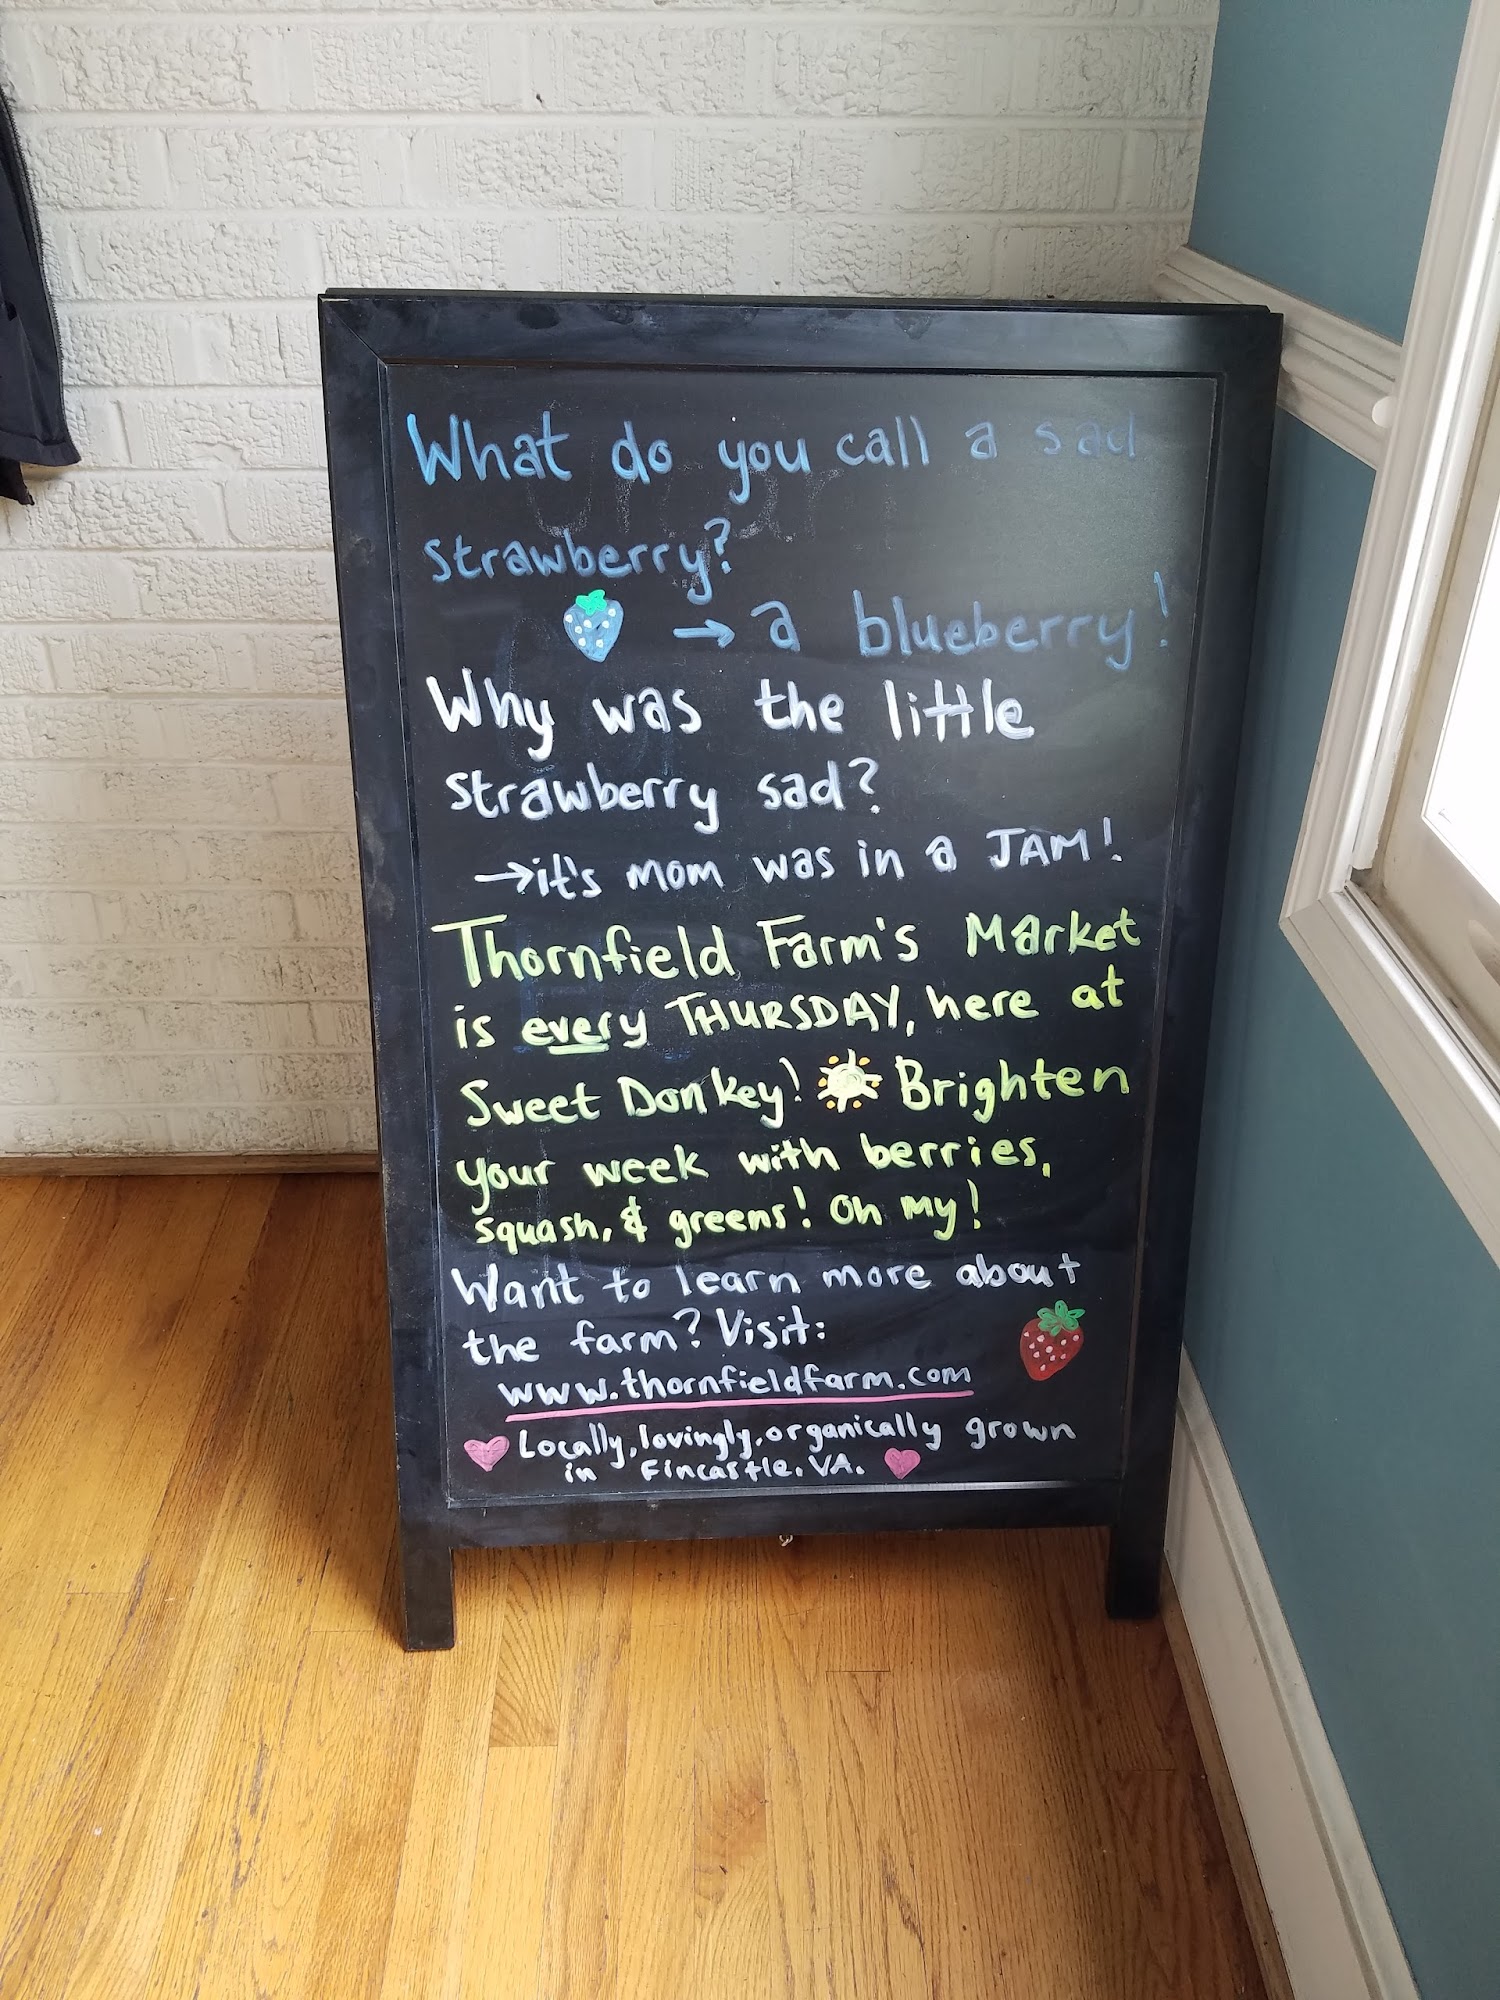 What do you call a sad
strawberry?
→ a blueberry!
Why was the little
strawberry sad?
→it's mom was in a JAM!
Thornfield Farm's Market
is every THURSDAY, here at
Sweet Donkey! Brighten
your week with berries,
squash, & greens! Oh my!
Want to learn more about
the farm? Visit:
www.thornfieldfarm.com
Locally, lovingly, organically grown
in Fincastle, VA.